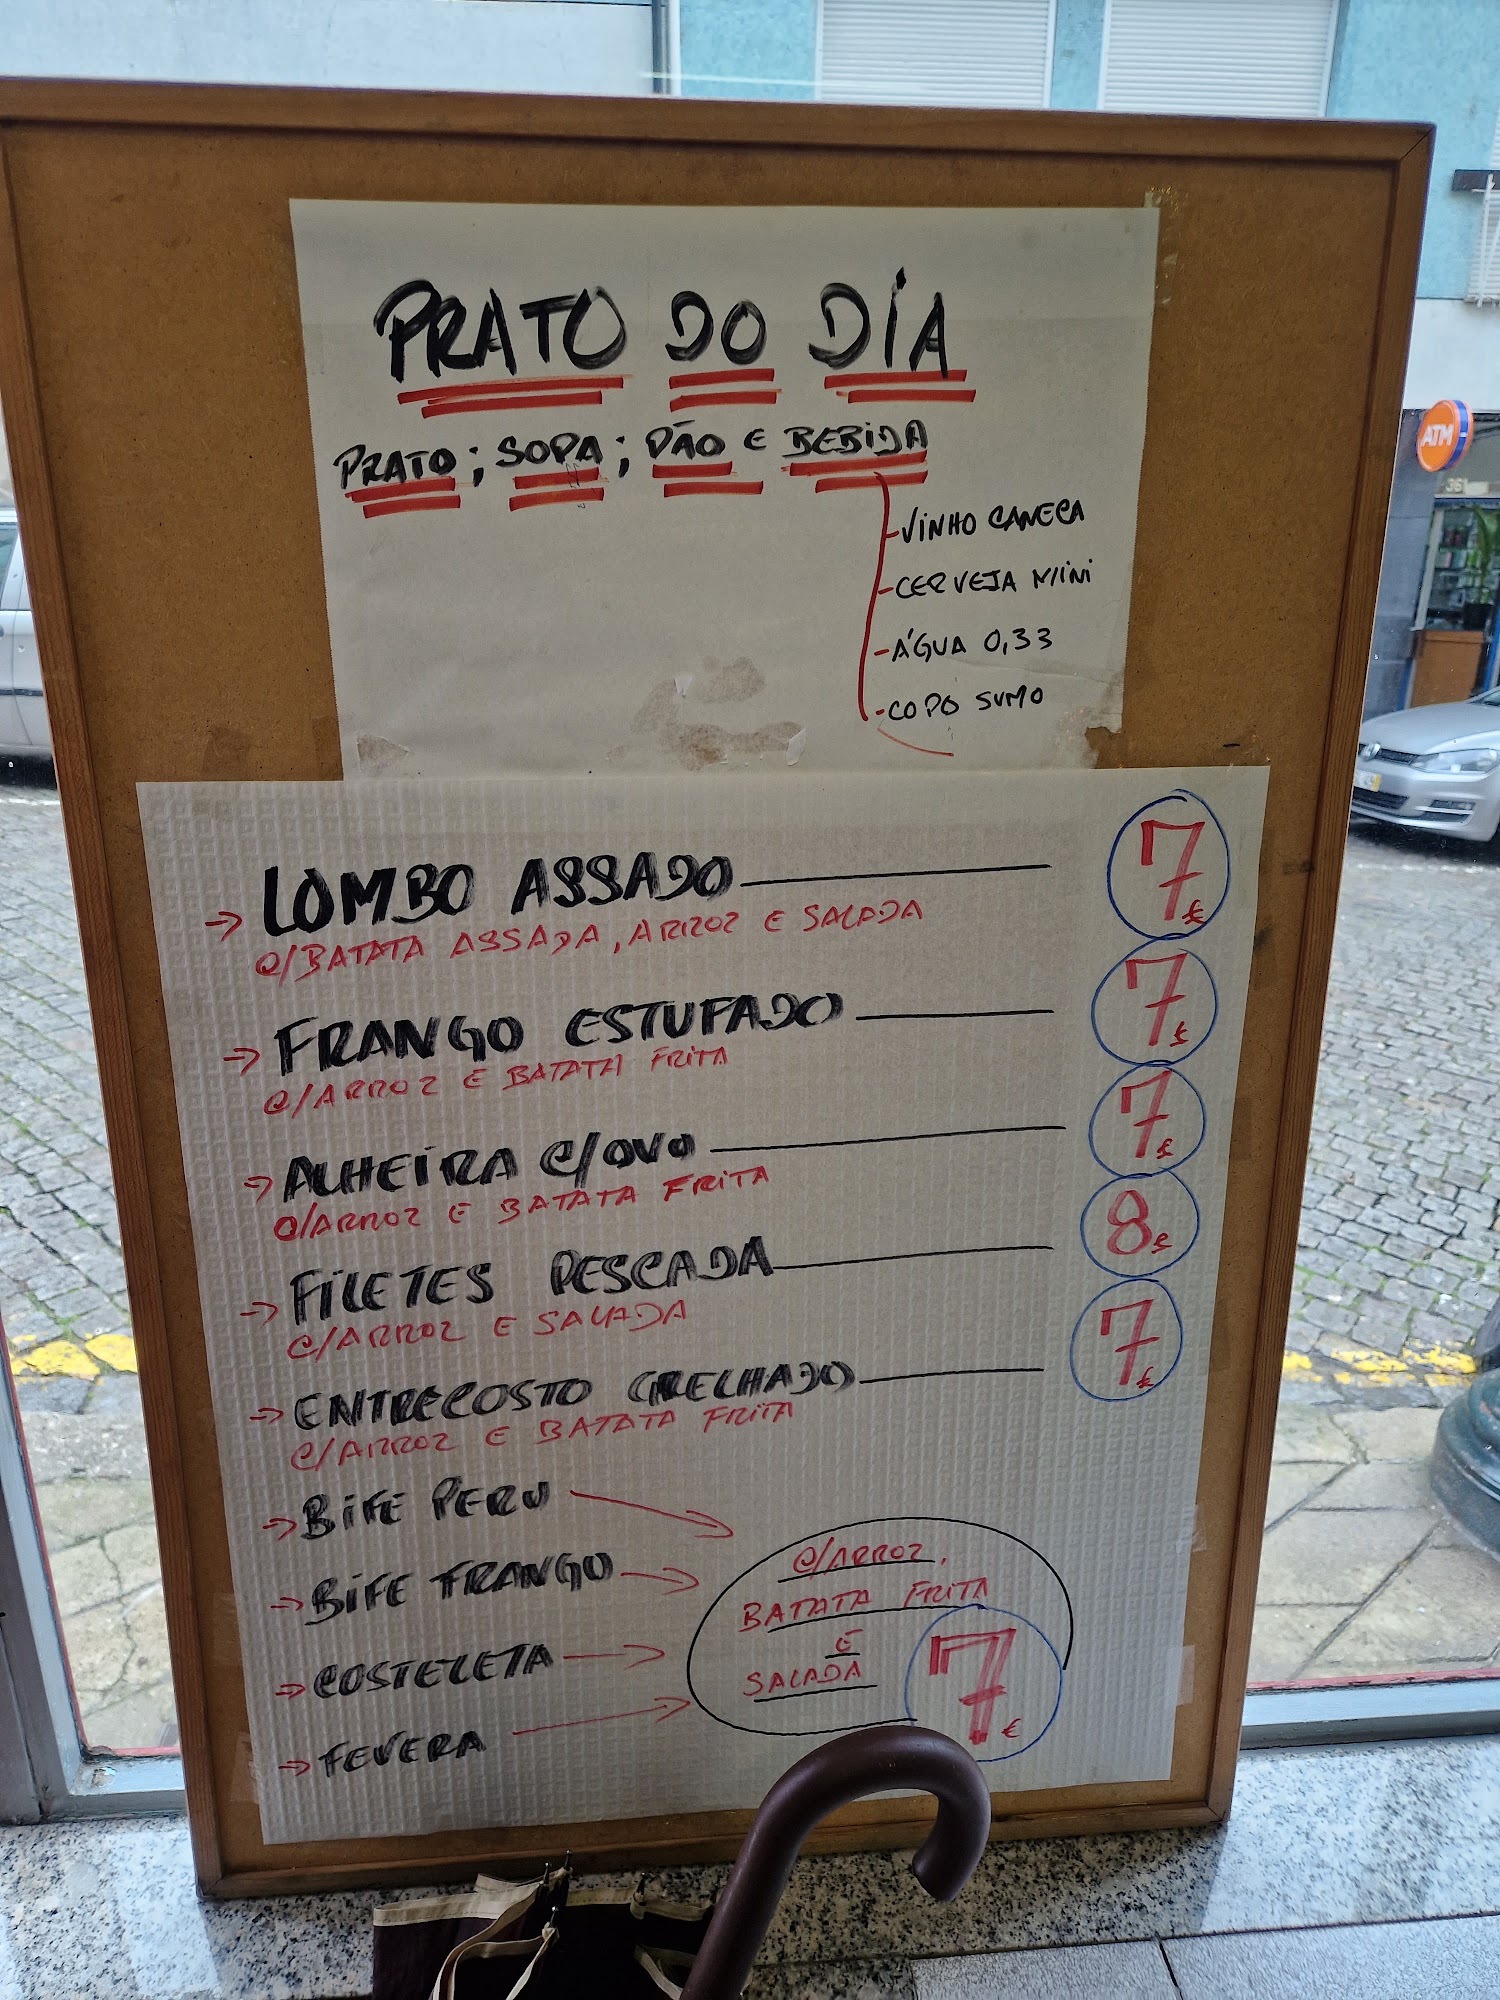 PRATO DO DIA
PRATO; SOPA; PÃO E BEBIDA
-VINHO CANECA
-CERVEJA MINI
-ÁGUA 0,33
-COPO SUMO
→ LOMBO ASSADO 7€
C/BATATA ASSADA, ARROZ E SALADA
→ FRANGO ESTUFADO 7€
C/ARROZ E BATATA FRITA
→ ALHEIRA C/OVO 7€
C/ARROZ E BATATA FRITA
→ FILETES PESCADA 8€
C/ARROZ E SALADA
→ ENTRECOSTO GRELHADO 7€
C/ARROZ E BATATA FRITA
→ BIFE PERU
→ BIFE FRANGO
→ COSTELETA
→ FEVERA
C/ARROZ,
BATATA FRITA
E
SALADA
7€
ATM
36